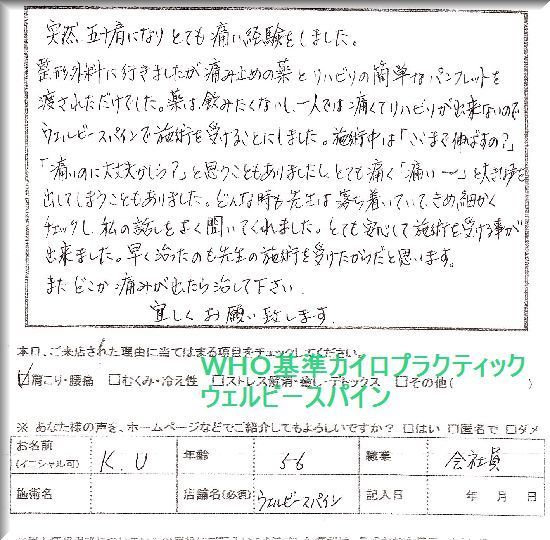 突然、五十肩になりとても痛い経験をしました。
整形外科に行きましたが痛み止めの薬とリハビリの簡単なパンフレットを
渡されただけでした。薬は飲みたくないし、一人では痛くてリハビリが出来ないので
ウェルビースパインで施術を受けることにしました。施術中は「ここまで伸ばすの？」
「痛いのに大丈夫かしら？」と思うこともありましたし、とても痛く「痛いー」と大きな声を
出してしまうこともありました。どんな時も先生は落ち着いていて、きめ細かく
チェックし、私の話しをよく聞いてくれました。とても安心して施術を受ける事が
出来ました。早く治ったのも先生の施術を受けたからだと思います。
またどこか痛みが出たら治して下さい。
宜しくお願い致します。
本日、ご来店された理由に当てはまる項目をチェックしてください。
WHO基準カイロプラクティック
☑肩こり・腰痛 □むくみ・冷え性 □ストレス解消・癒し・デトックス □その他（
ウェルビースパイン
※ あなた様の声を、ホームページなどでご紹介してもよろしいですか？ □はい □匿名で □ダメ
お名前
(イニシャル可) K.U 年齢 56 職業 会社員
施術名 店舗名(必須) ウェルビースパイン 記入日 年 月 日